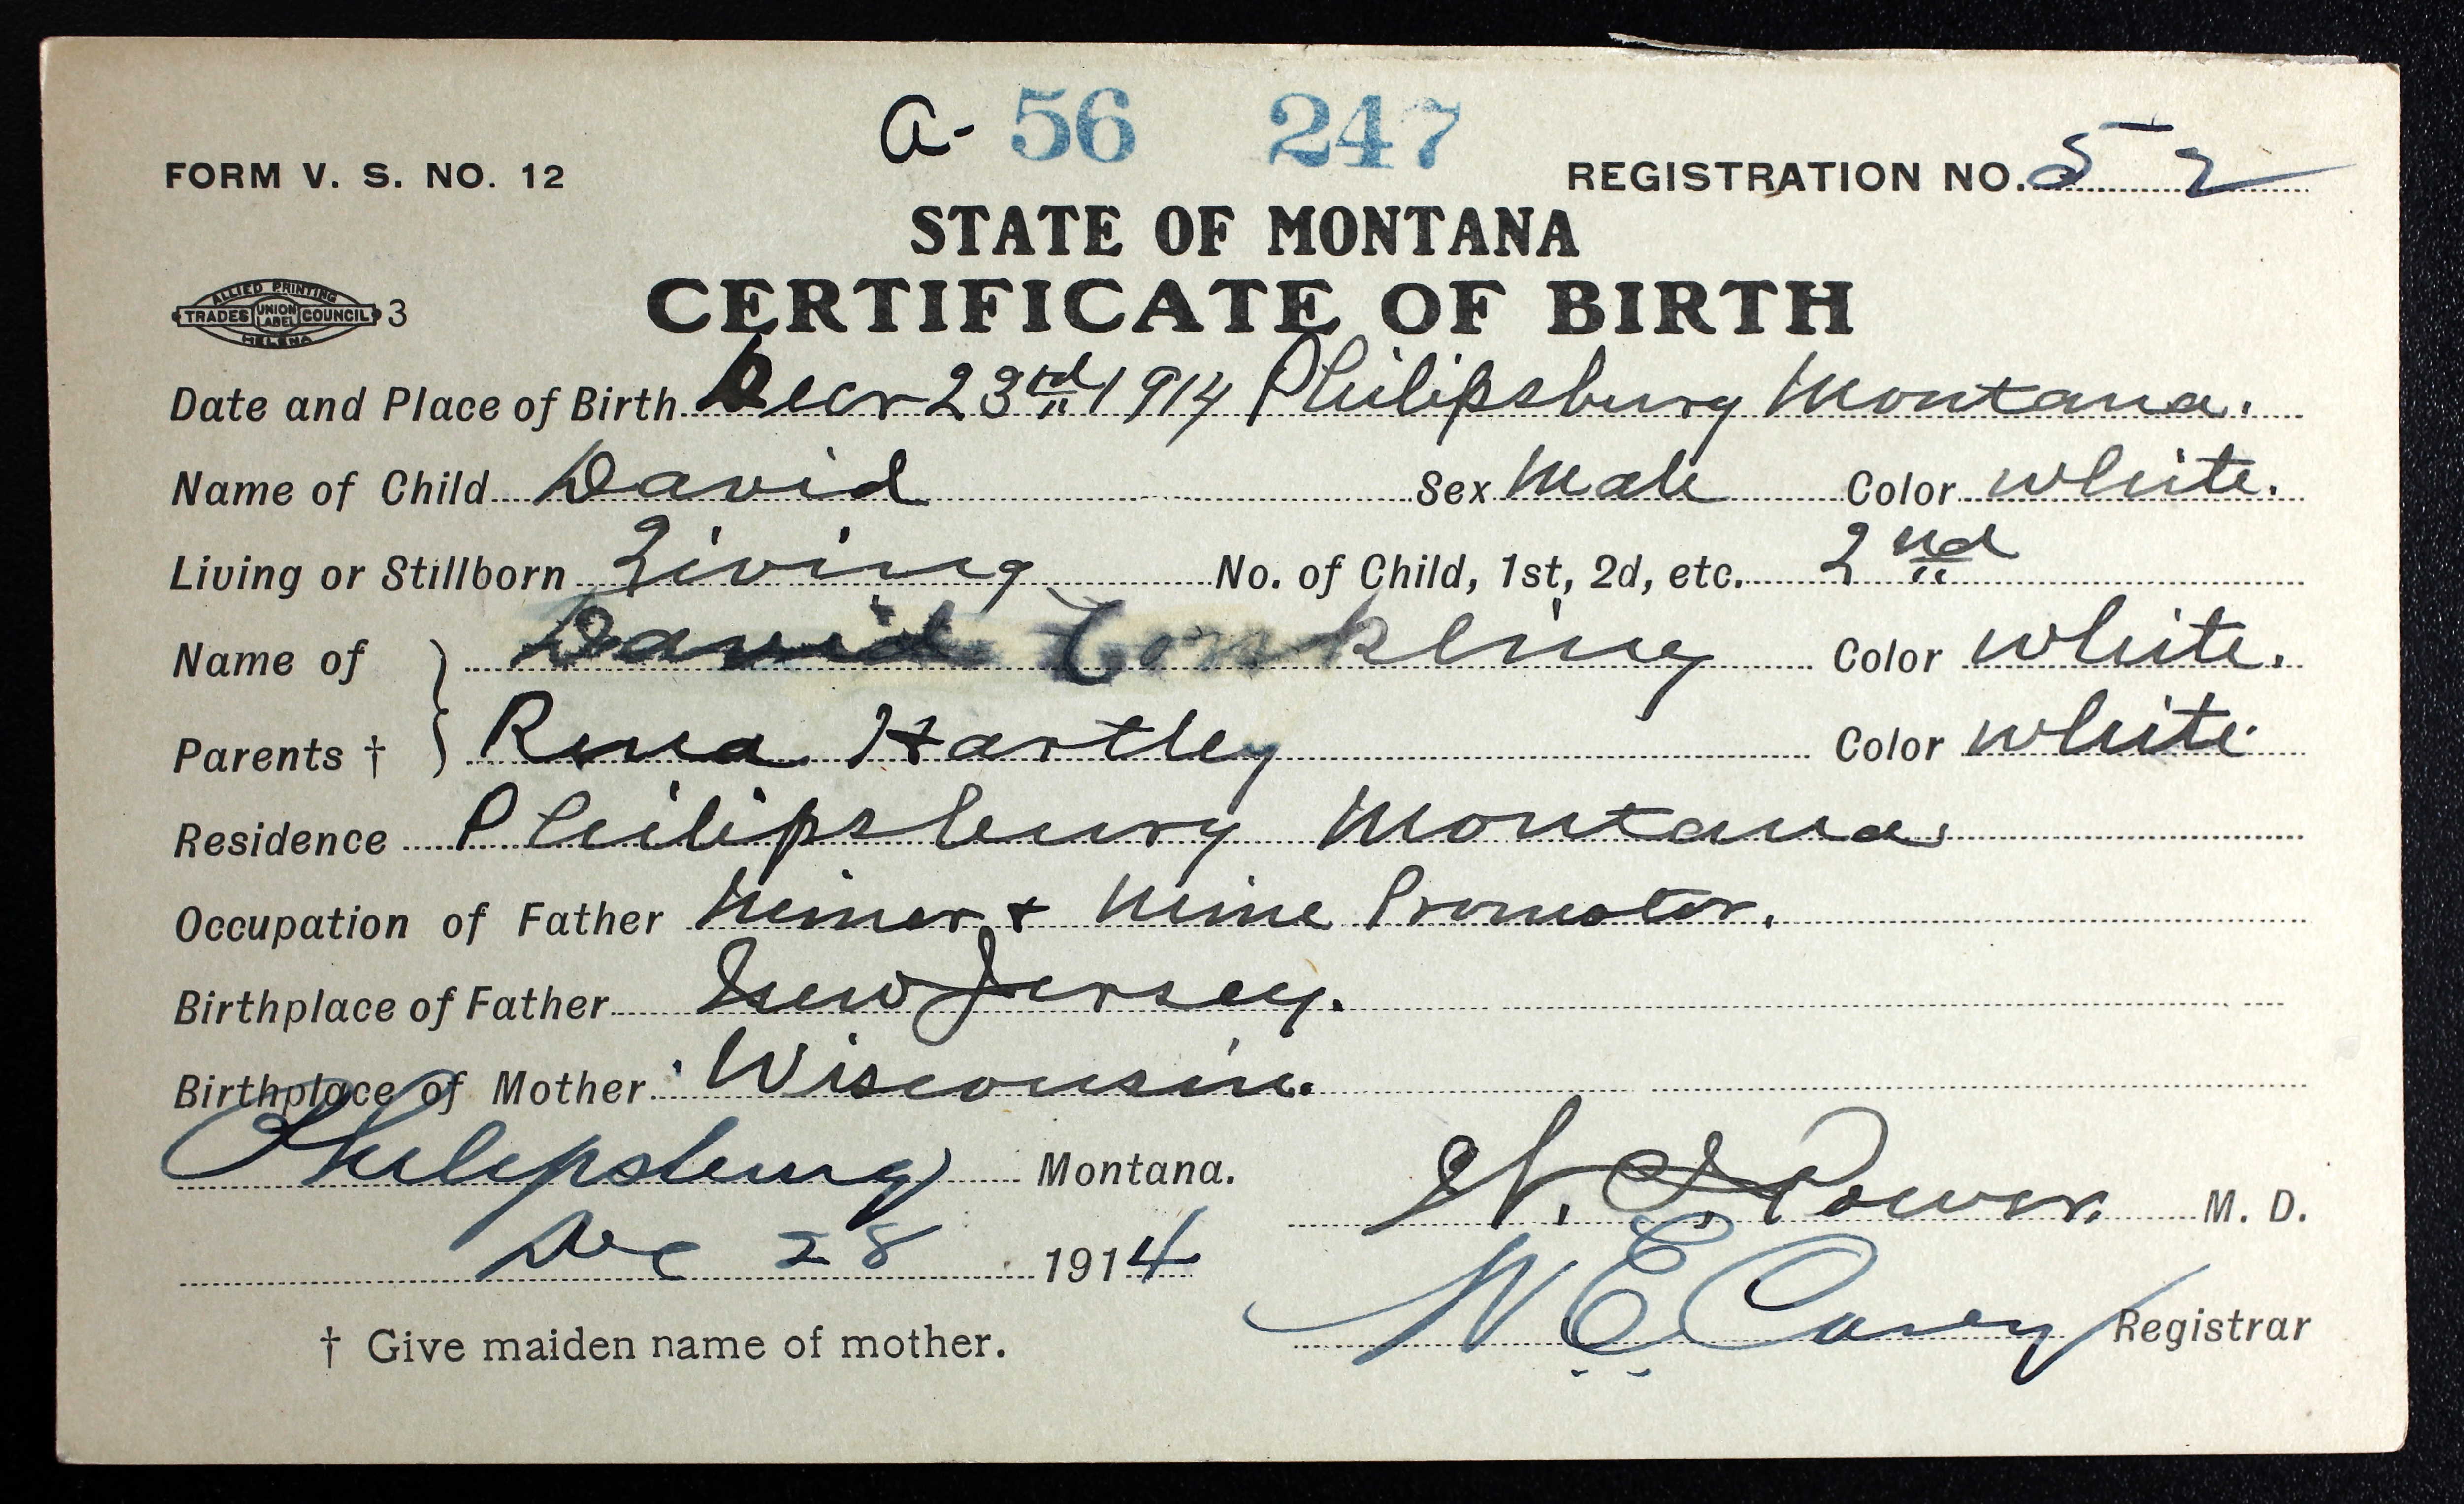 a- 56 247
FORM V. S. NO. 12
REGISTRATION NO. 52
STATE OF MONTANA
ALLIED PRINTING
TRADES UNION LABEL COUNCIL 3
HELENA
CERTIFICATE OF BIRTH
Date and Place of Birth Decr 23rd 1914 Philipsburg Montana.
Name of Child David Sex Male Color white.
Living or Stillborn Living No. of Child, 1st, 2d, etc. 2nd
Name of David Conkling Color white.
Parents † Rena Hartley Color white
Residence Philipsburg Montana.
Occupation of Father Miner + Mine Promotor.
Birthplace of Father New Jersey.
Birthplace of Mother Wisconsin.
Philipsburg Montana.
W. I. Power. M. D.
Dec 28 1914
W E Carey Registrar
† Give maiden name of mother.